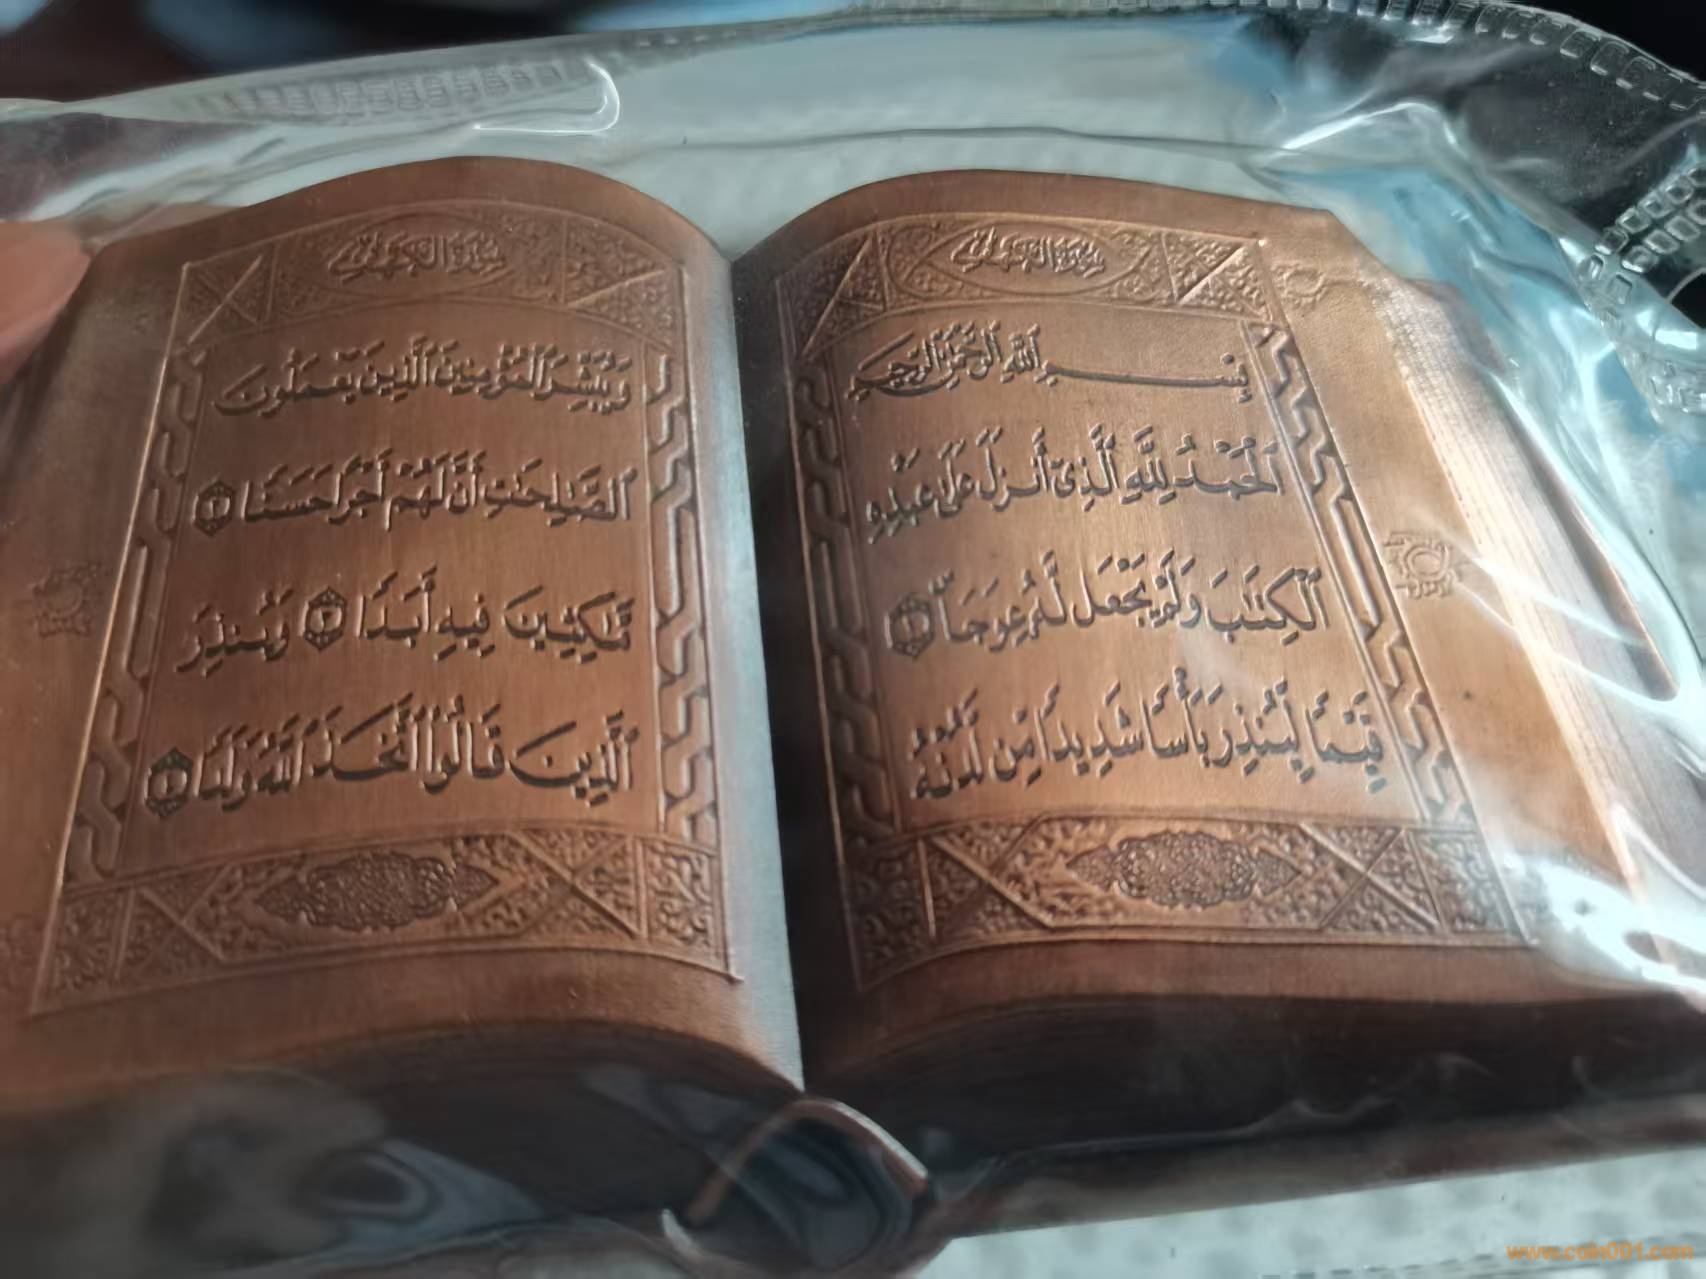 سورة الكهف
بِسْمِ اللَّهِ الرَّحْمَٰنِ الرَّحِيمِ
الْحَمْدُ لِلَّهِ الَّذِي أَنزَلَ عَلَىٰ عَبْدِهِ
الْكِتَابَ وَلَمْ يَجْعَل لَّهُ عِوَجًا ١
قَيِّمًا لِّيُنذِرَ بَأْسًا شَدِيدًا مِّن لَّدُنْهُ
سورة الكهف
وَيُبَشِّرَ الْمُؤْمِنِينَ الَّذِينَ يَعْمَلُونَ
الصَّالِحَاتِ أَنَّ لَهُمْ أَجْرًا حَسَنًا ٢
مَّاكِثِينَ فِيهِ أَبَدًا ٣ وَيُنذِرَ
الَّذِينَ قَالُوا اتَّخَذَ اللَّهُ وَلَدًا ٤
www.coin001.com